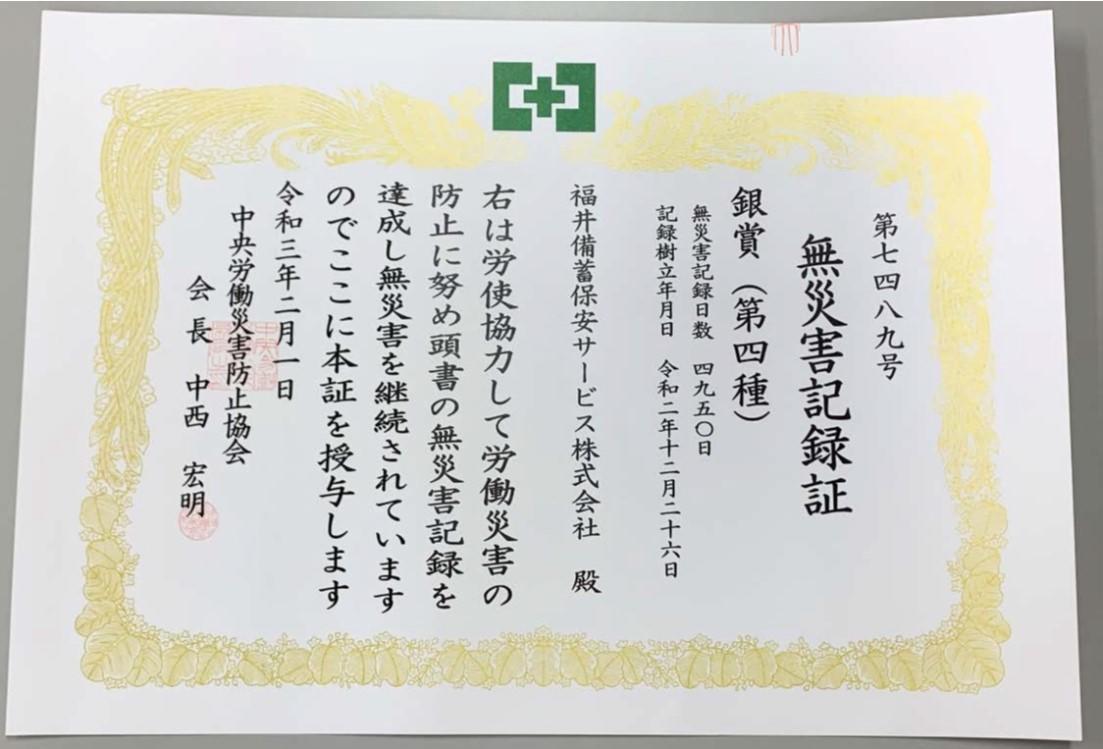 第七四八九号
無災害記録証
銀賞（第四種）
無災害記録日数　四九五〇日
記録樹立年月日　令和二年十二月二十六日
福井備蓄保安サービス株式会社　殿
右は労使協力して労働災害の
防止に努め頭書の無災害記録を
達成し無災害を継続されています
のでここに本証を授与します
令和三年二月一日
中央労働災害防止協会
会長　中西　宏明